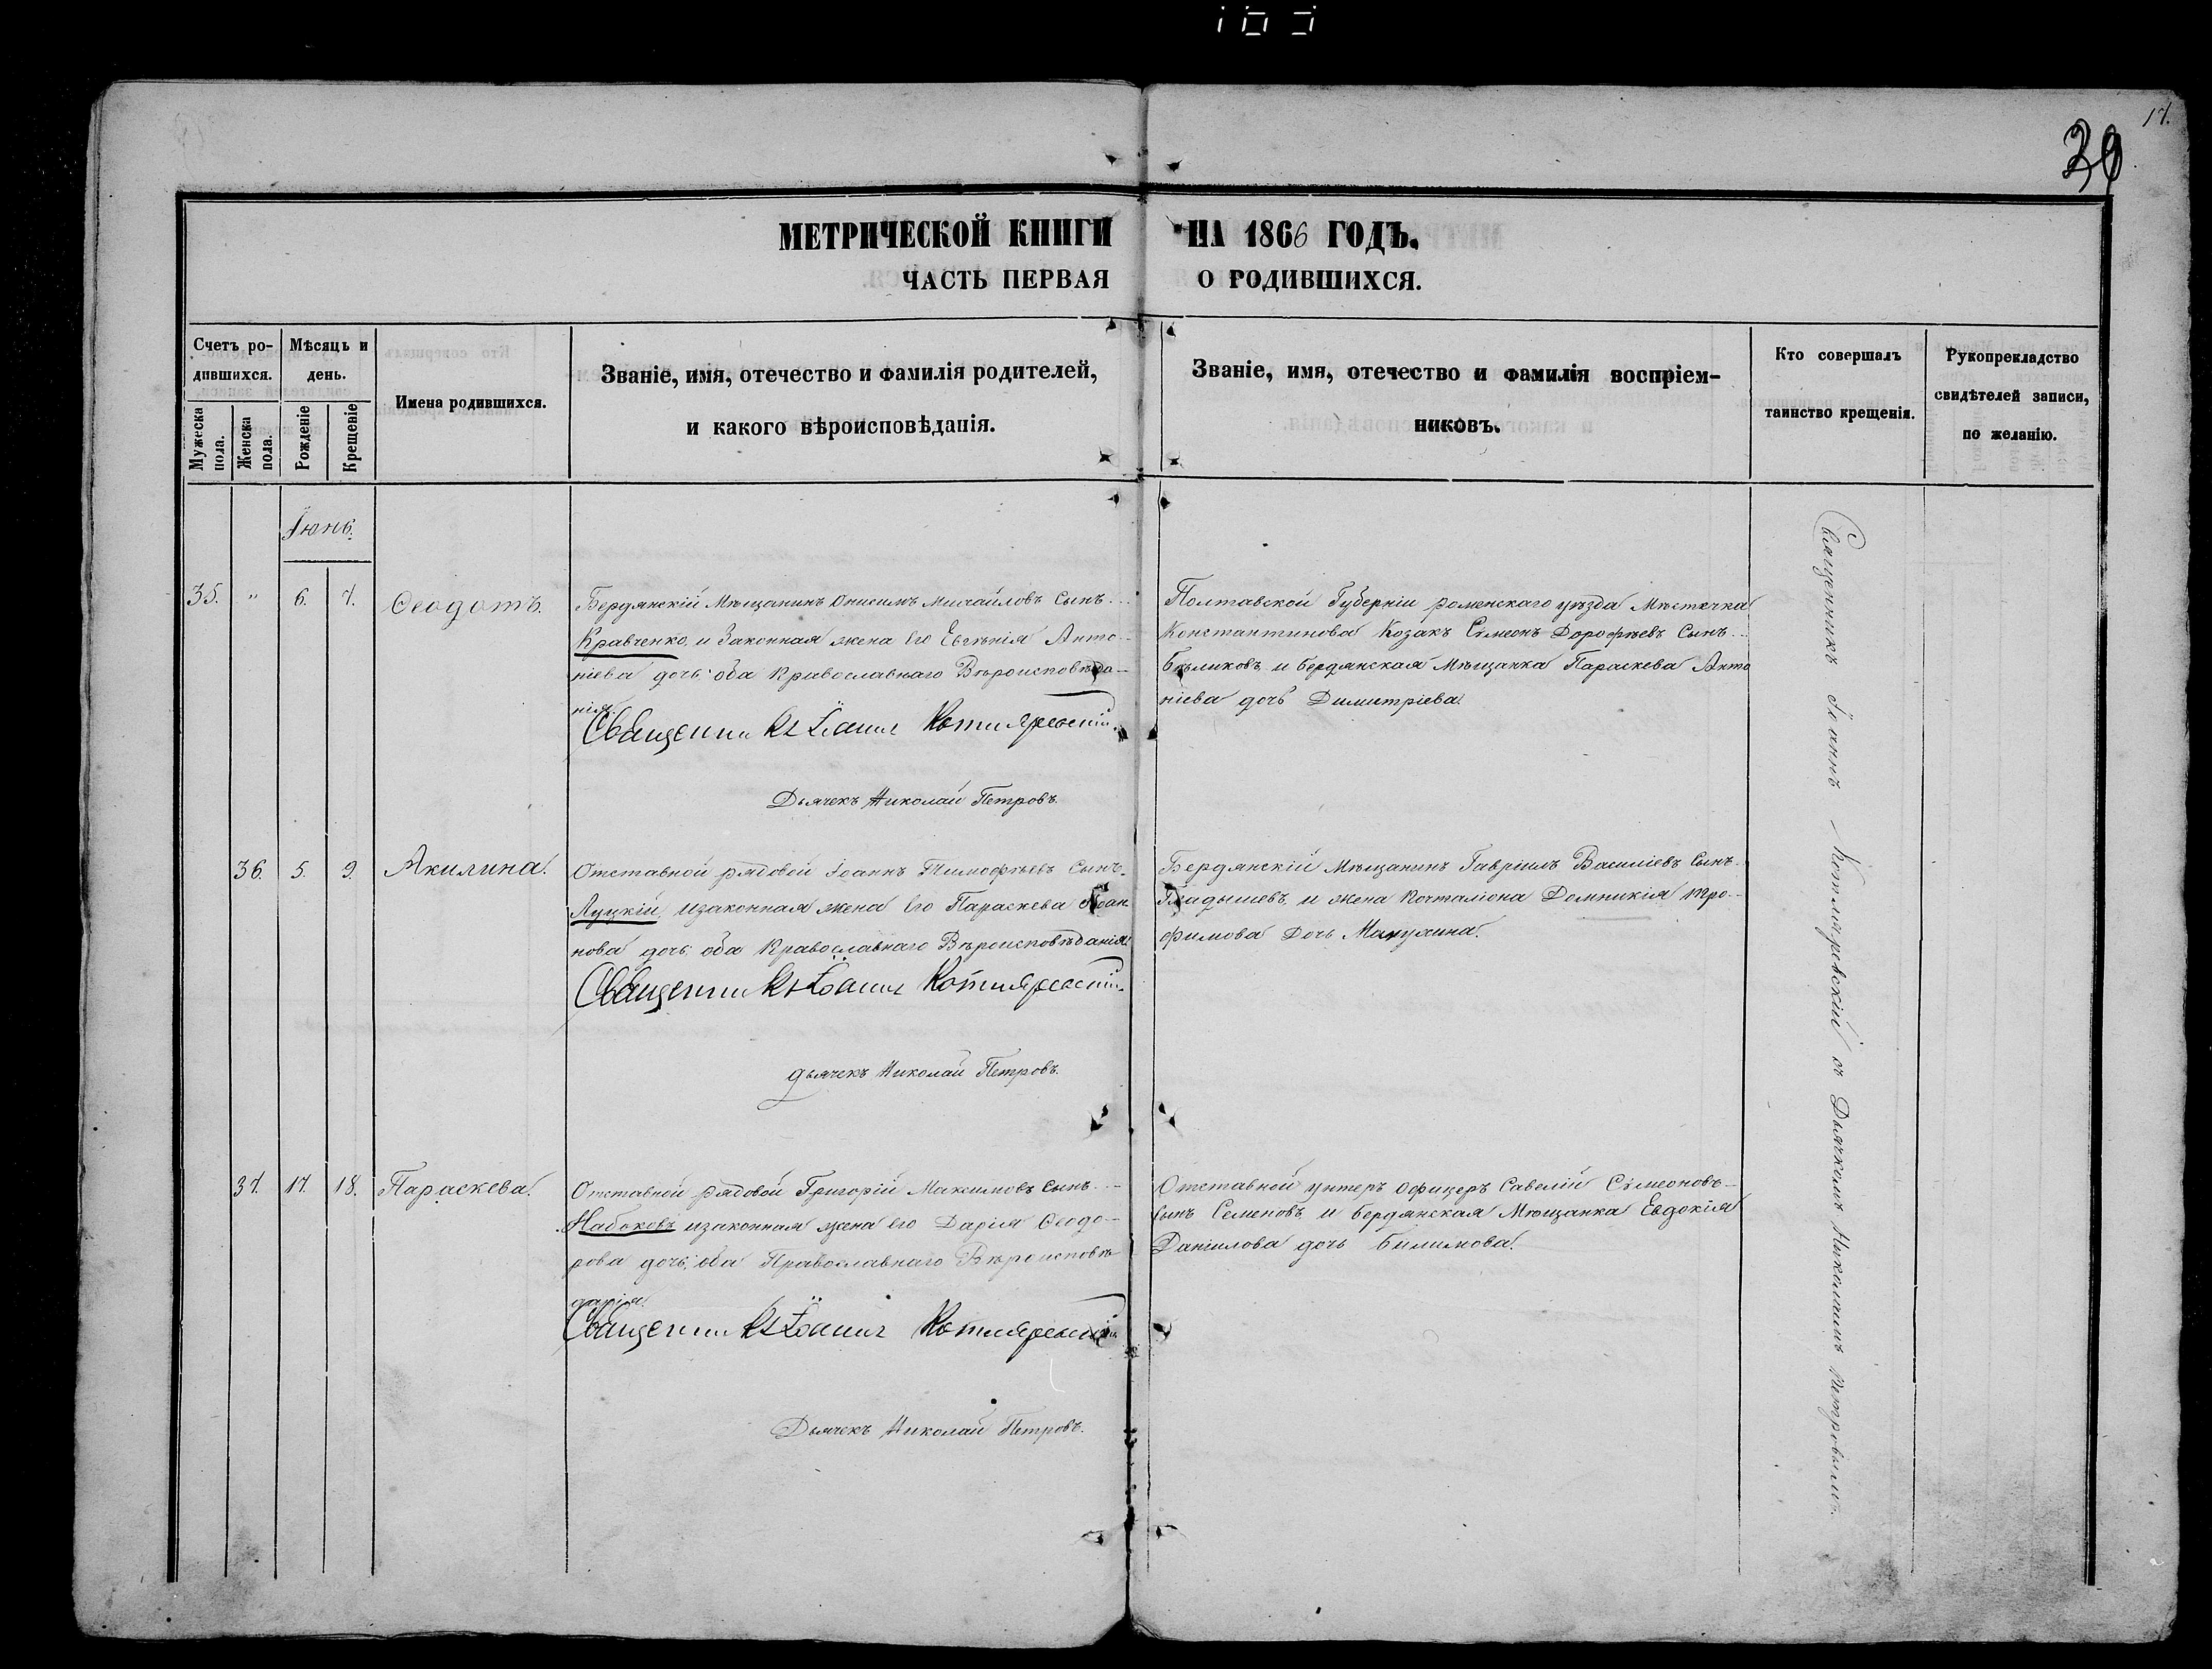 17.
39
МЕТРИЧЕСКОЙ КНИГИ НА 1866 ГОДЪ.
ЧАСТЬ ПЕРВАЯ О РОДИВШИХСЯ.
Счетъ ро-
дившихся.
Мужеска пола.
Женска пола.
Мѣсяцъ и
день.
Рожденіе
Крещеніе
Имена родившихся.
Званіе, имя, отечество и фамилія родителей,
и какого вѣроисповѣданія.
Званіе, имя, отечество и фамилія воспріем-
никовъ.
Кто совершалъ
таинство крещенія.
Рукоприкладство
свидѣтелей записи,
по желанію.
Іюнь.
35. " 6. 7. Ѳеодотъ.
Бердянскій Мѣщанинъ Онисимъ Михайловъ Сынъ
Кравченко, и Законная жена его Евгенія Анто-
ніева дочь; оба Православнаго Вѣроисповѣда-
нія.
Священникъ Іоаннъ Котляревскій.
Дьячекъ Николай Петровъ.
Полтавской Губерніи роменскаго уѣзда Мѣстечка
Константинова Козакъ Сѵмеонъ Дорофѣевъ Сынъ
Бѣликовъ и бердянская Мѣщанка Параскева Анто
ніева дочь Димитріева.
36. 5. 9. Акилина.
Отставной рядовой Іоаннъ Тимофѣевъ Сынъ
Луцкій, изаконная жена его Параскева Іоан
нова дочь; оба Православнаго Вѣроисповѣданія.
Священникъ Іоаннъ Котляревскій.
дьячекъ Николай Петровъ.
Бердянскій Мѣщанинъ Гавріилъ Василіевъ Сынъ
Гладышевъ, и жена Почталіона Домникія Тро-
фимова Дочь Манухина.
37. 17. 18. Параскева.
Отставной рядовой Григорій Максимовъ Сынъ
Набоковъ изаконная жена его Дарія Ѳеодо-
рова дочь; оба Православнаго Вѣроисповѣ
данія.
Священникъ Іоаннъ Котляревскій
Дьячекъ Николай Петровъ.
Отставной унтеръ офицеръ Савелій Сѵмеоновъ
сынъ Семеновъ, и бердянская Мѣщанка Евдокія
Даніилова дочь Билимова.
Священникъ Іоаннъ Котляревскій съ Дьячкомъ Николаемъ Петровымъ.